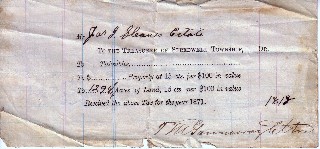 M Jas J Eleanes Estate
To the Treasurer of Speedwell Township, Dr.
To Tithable,
To $ Property at 15 cts. per $100 in value
To 1828 Acres of Land, 15 cts per $100 in value 18 18
Received the above Tax for the year 1871.